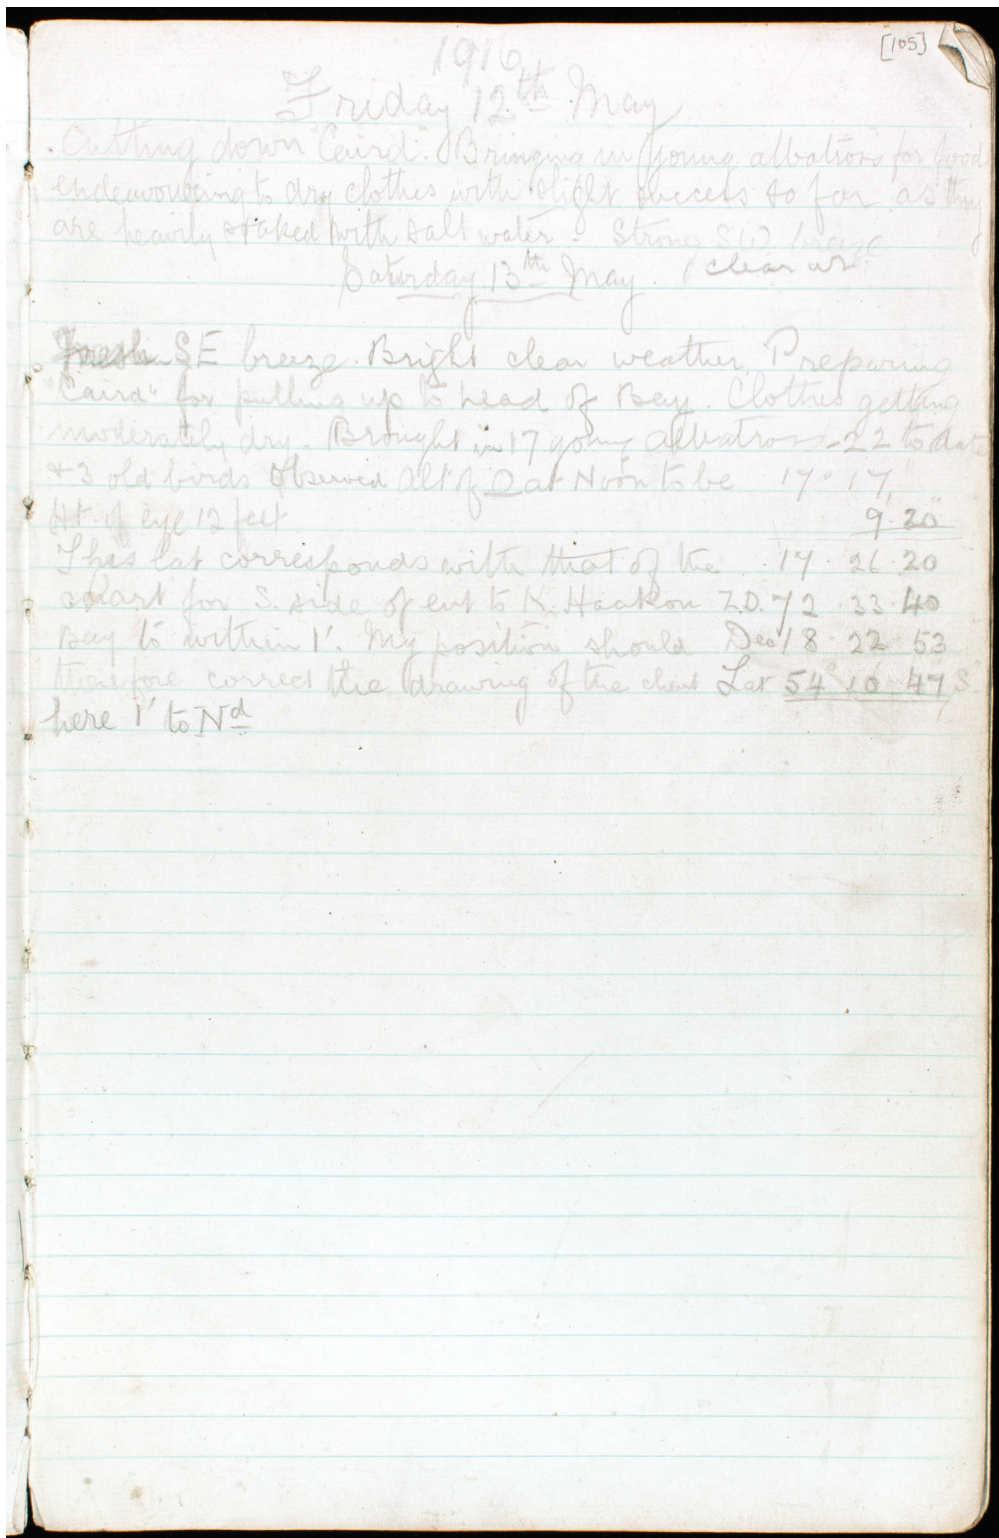 [105]
1916
Friday 12th May
Cutting down "Caird". Bringing in young albatross for food
endeavouring to dry clothes with slight success so far as they
are heavily soaked with salt water. Strong SW breeze
clear wr
Saturday 13th May
Fresh SE breeze. Bright clear weather. Preparing
"Caird" for pulling up to head of Bay. Clothes getting
moderately dry. Brought in 17 young albatross - 22 to date
& 3 old birds Observed Alt of at Noon to be 17° 17'
Ht. of eye 12 feet 9 20"
This lat corresponds with that of the 17 26 20
chart for S. side of ent to K. Haakon Z.D. 72 33 40
Bay to within 1'. My position should Dec 18 22 53
therefore correct the drawing of the chart Lat 54° 10' 47" S.
here 1' to Nd